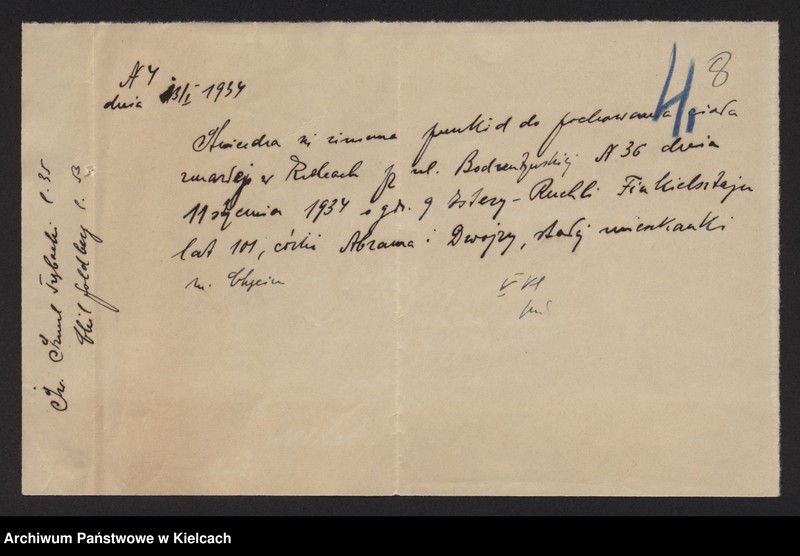 N 4
dnia 13/I 1934
4.
8
Stwierdza się zimowa punkt do pochowania ciała
zmarłej w Kielcach pr ul. Bodzentyńskiej N 36 dnia
11 stycznia 1934 o g. 9 Estery-Ruchli Finkielsztajn
lat 101, córki Abrama i Dwojry, stałej mieszkanki
m. Chęcin
V VI
Św. Izrael l. 35
Chil Goldberg l. 53
Archiwum Państwowe w Kielcach